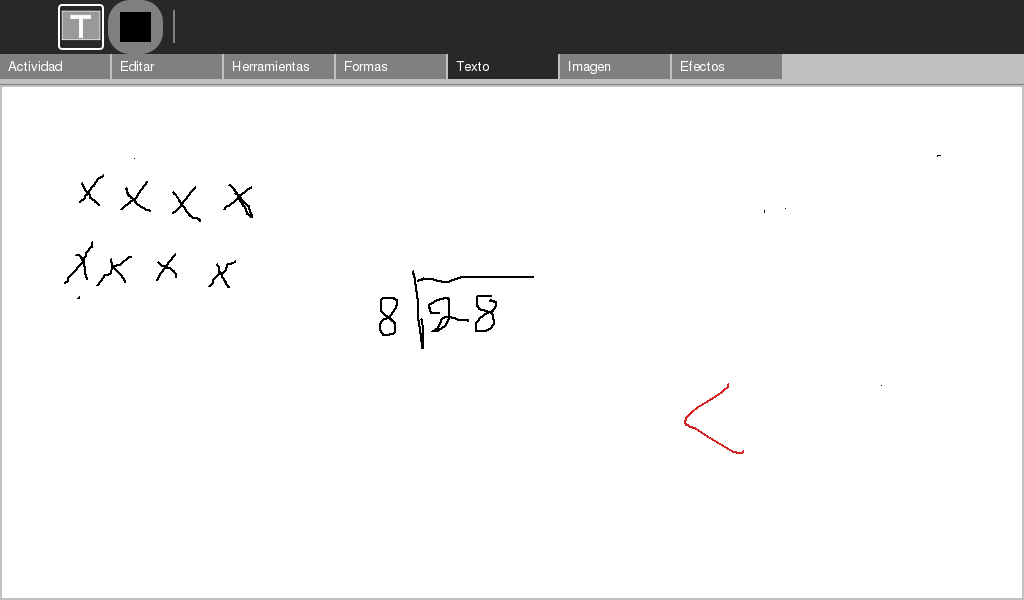 T
Actividad Editar Herramientas Formas Texto Imagen Efectos
x x x x
x x x x
8 28
<